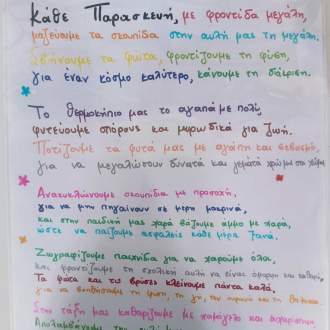 Κάθε Παρασκευή, με φροντίδα μεγάλη,
μαζεύουμε τα σκουπίδια στην αυλή μας τη μεγάλη.
Σβήνουμε τα φώτα, φροντίζουμε τη φύση,
για έναν κόσμο καλύτερο, κάνουμε τη διάκριση.
Το θερμοκήπιο μας το αγαπάμε πολύ,
φυτεύουμε σπόρους και μυρωδικά για ζωή.
Ποτίζουμε τα φυτά μας με αγάπη και σεβασμό,
για να μεγαλώσουν δυνατά και γεμάτα χρώμα στο χώμα
Ανακυκλώνουμε σκουπίδια με προσοχή,
για να μην πηγαίνουν σε μέρη μακρινά,
και στην παιδική μας χαρά βάζουμε άμμο με χαρά,
ώστε να παίζουμε ασφαλείς κάθε μέρα ξανά.
Ζωγραφίζουμε παιχνίδια για να χαρούμε όλοι,
και φροντίζουμε τη σχολική αυλή να είναι όμορφη και καθαρή.
Τα φώτα και τις βρύσες κλείνουμε πάντα καλά,
για να βοηθήσουμε τη φύση, τη γη, τον ουρανό και τη θάλασσα
Στην τάξη μας καθαρίζουμε με χαμόγελο και
Απολαμβάνουμε